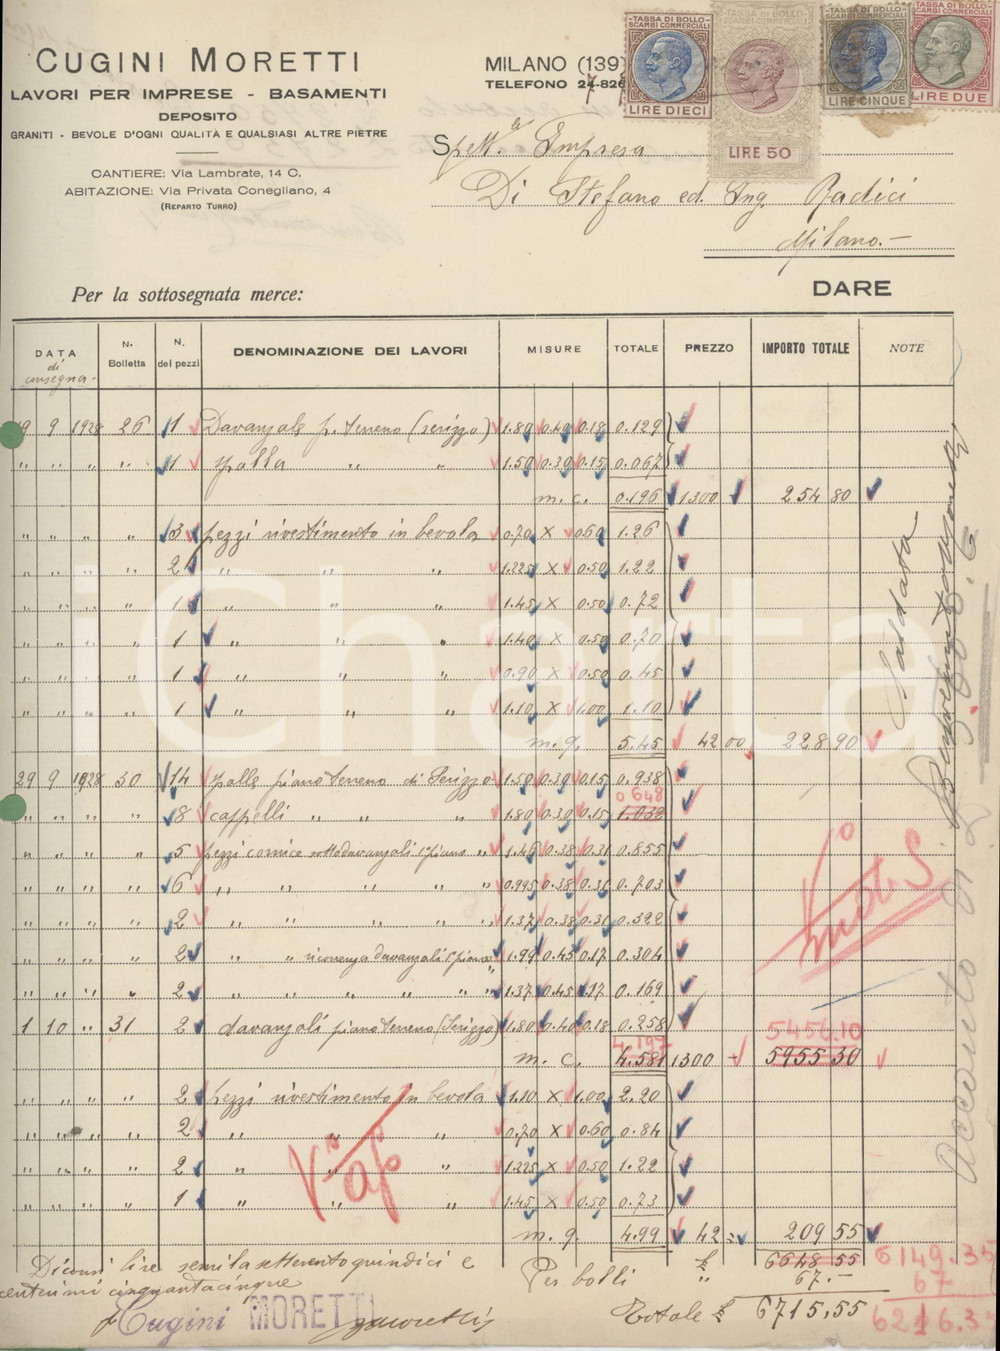 CUGINI MORETTI
LAVORI PER IMPRESE - BASAMENTI
DEPOSITO
GRANITI - BEVOLE D'OGNI QUALITÀ E QUALSIASI ALTRE PIETRE
CANTIERE: Via Lambrate, 14 C.
ABITAZIONE: Via Privata Conegliano, 4
(REPARTO TURRO)
MILANO (139)
TELEFONO 24-826
TASSA DI BOLLO SCAMBI COMMERCIALI LIRE DIECI
TASSA DI BOLLO SCAMBI COMMERCIALI LIRE 50
TASSA DI BOLLO SCAMBI COMMERCIALI LIRE CINQUE
TASSA DI BOLLO SCAMBI COMMERCIALI LIRE DUE
Spett. Impresa
Di Stefano ed Ing. Radici
Milano.-
Per la sottosegnata merce:
DARE
DATA di consegna N. Bolletta N. dei pezzi DENOMINAZIONE DEI LAVORI MISURE TOTALE PREZZO IMPORTO TOTALE NOTE
9 9 1928 26 1 Davanzale p. terreno (serizzo) 1.80 0.40 0.18 0.129
" " " " 1 spalla " " 1.50 0.30 0.15 0.067
m. c. 0.196 1300 - 254 80
" " " " 3 pezzi rivestimento in bevola 0.70 X 0.60 1.26
" " " " 2 " " " 1.225 X 0.50 1.22
" " " " 1 " " " 1.45 X 0.50 0.72
" " " " 1 " " " 1.40 X 0.50 0.70
" " " " 1 " " " 0.90 X 0.50 0.45
" " " " 1 " " " 1.10 X 1.00 1.10
m. q. 5.45 42 00 228 90
29 9 1928 30 14 spalle piano terreno di Serizzo 1.50 0.30 0.15 0.938
0 648
" " " " 8 cappelli " " " 1.80 0.30 0.15 1.032
" " " " 5 pezzi cornice sottodavanzali 1° piano " 1.46 0.38 0.31 0.855
" " " " 6 " " " " " 0.995 0.38 0.31 0.703
" " " " 2 " " " " " 1.37 0.38 0.31 0.322
" " " " 2 " " davanzali 1° piano " 1.99 0.45 0.17 0.304
" " " " 2 " " " " " " 1.37 0.45 0.17 0.169
1 10 " 31 2 davanzali piano terreno (Serizzo) 1.80 0.40 0.18 0.258
4.197 5456.10
m. c. 4.581 1300 - 5955 30
" " " " 2 pezzi rivestimento in bevola 1.10 X 1.00 2.20
" " " " 2 " " " 0.70 X 0.60 0.84
" " " " 2 " " " 1.225 X 0.50 1.22
" " " " 1 " " " 1.45 X 0.50 0.73
m. q. 4.99 42 = 209 55
£ 6648 55 6149.35
Diconsi lire seimilasettecentoquindici e
centesimi cinquantacinque
Per bolli " 67.- 67
Totale £ 6715,55 6216.35
p Cugini MORETTI
Saldata
Acconto di £
iCharta